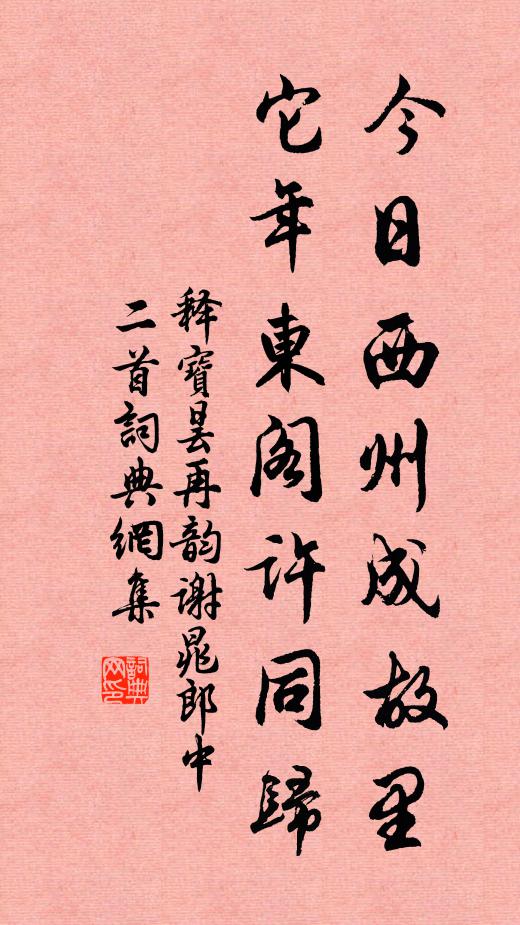 今日西州成故里
它年東阁許同歸
释寶昙再韵谢晁郎中
二首詞典網集
詞典网印